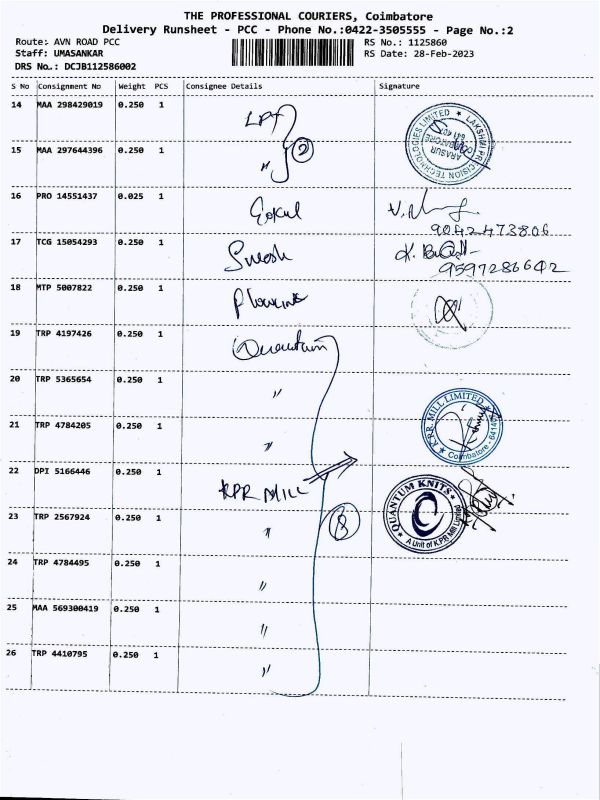 THE PROFESSIONAL COURIERS, Coimbatore
Delivery Runsheet - PCC - Phone No.:0422-3505555 - Page No.:2
Route: AVN ROAD PCC RS No.: 1125860
Staff: UMASANKAR RS Date: 28-Feb-2023
DRS No.: DCJB112586002
S No Consignment No Weight PCS Consignee Details Signature
14 MAA 298429019 0.250 1 LPT
LAKSHMI PRECISION TECHNOLOGIES LIMITED ★ ARASUR COIMBATORE 641 407
15 MAA 297644396 0.250 1 〃 2
16 PRO 14551437 0.025 1 Gokul
9042473806
17 TCG 15054293 0.250 1 Suresh
9597286642
18 MTP 5007822 0.250 1
19 TRP 4197426 0.250 1 Quantum
20 TRP 5365654 0.250 1 〃
21 TRP 4784205 0.250 1 〃
K.P.R. MILL LIMITED ★ Coimbatore
22 DPI 5166446 0.250 1 KPR MILL
QUANTUM KNITS A Unit of K.P.R Mill Limited
23 TRP 2567924 0.250 1 〃 8
24 TRP 4784495 0.250 1 〃
25 MAA 569300419 0.250 1 〃
26 TRP 4410795 0.250 1 〃